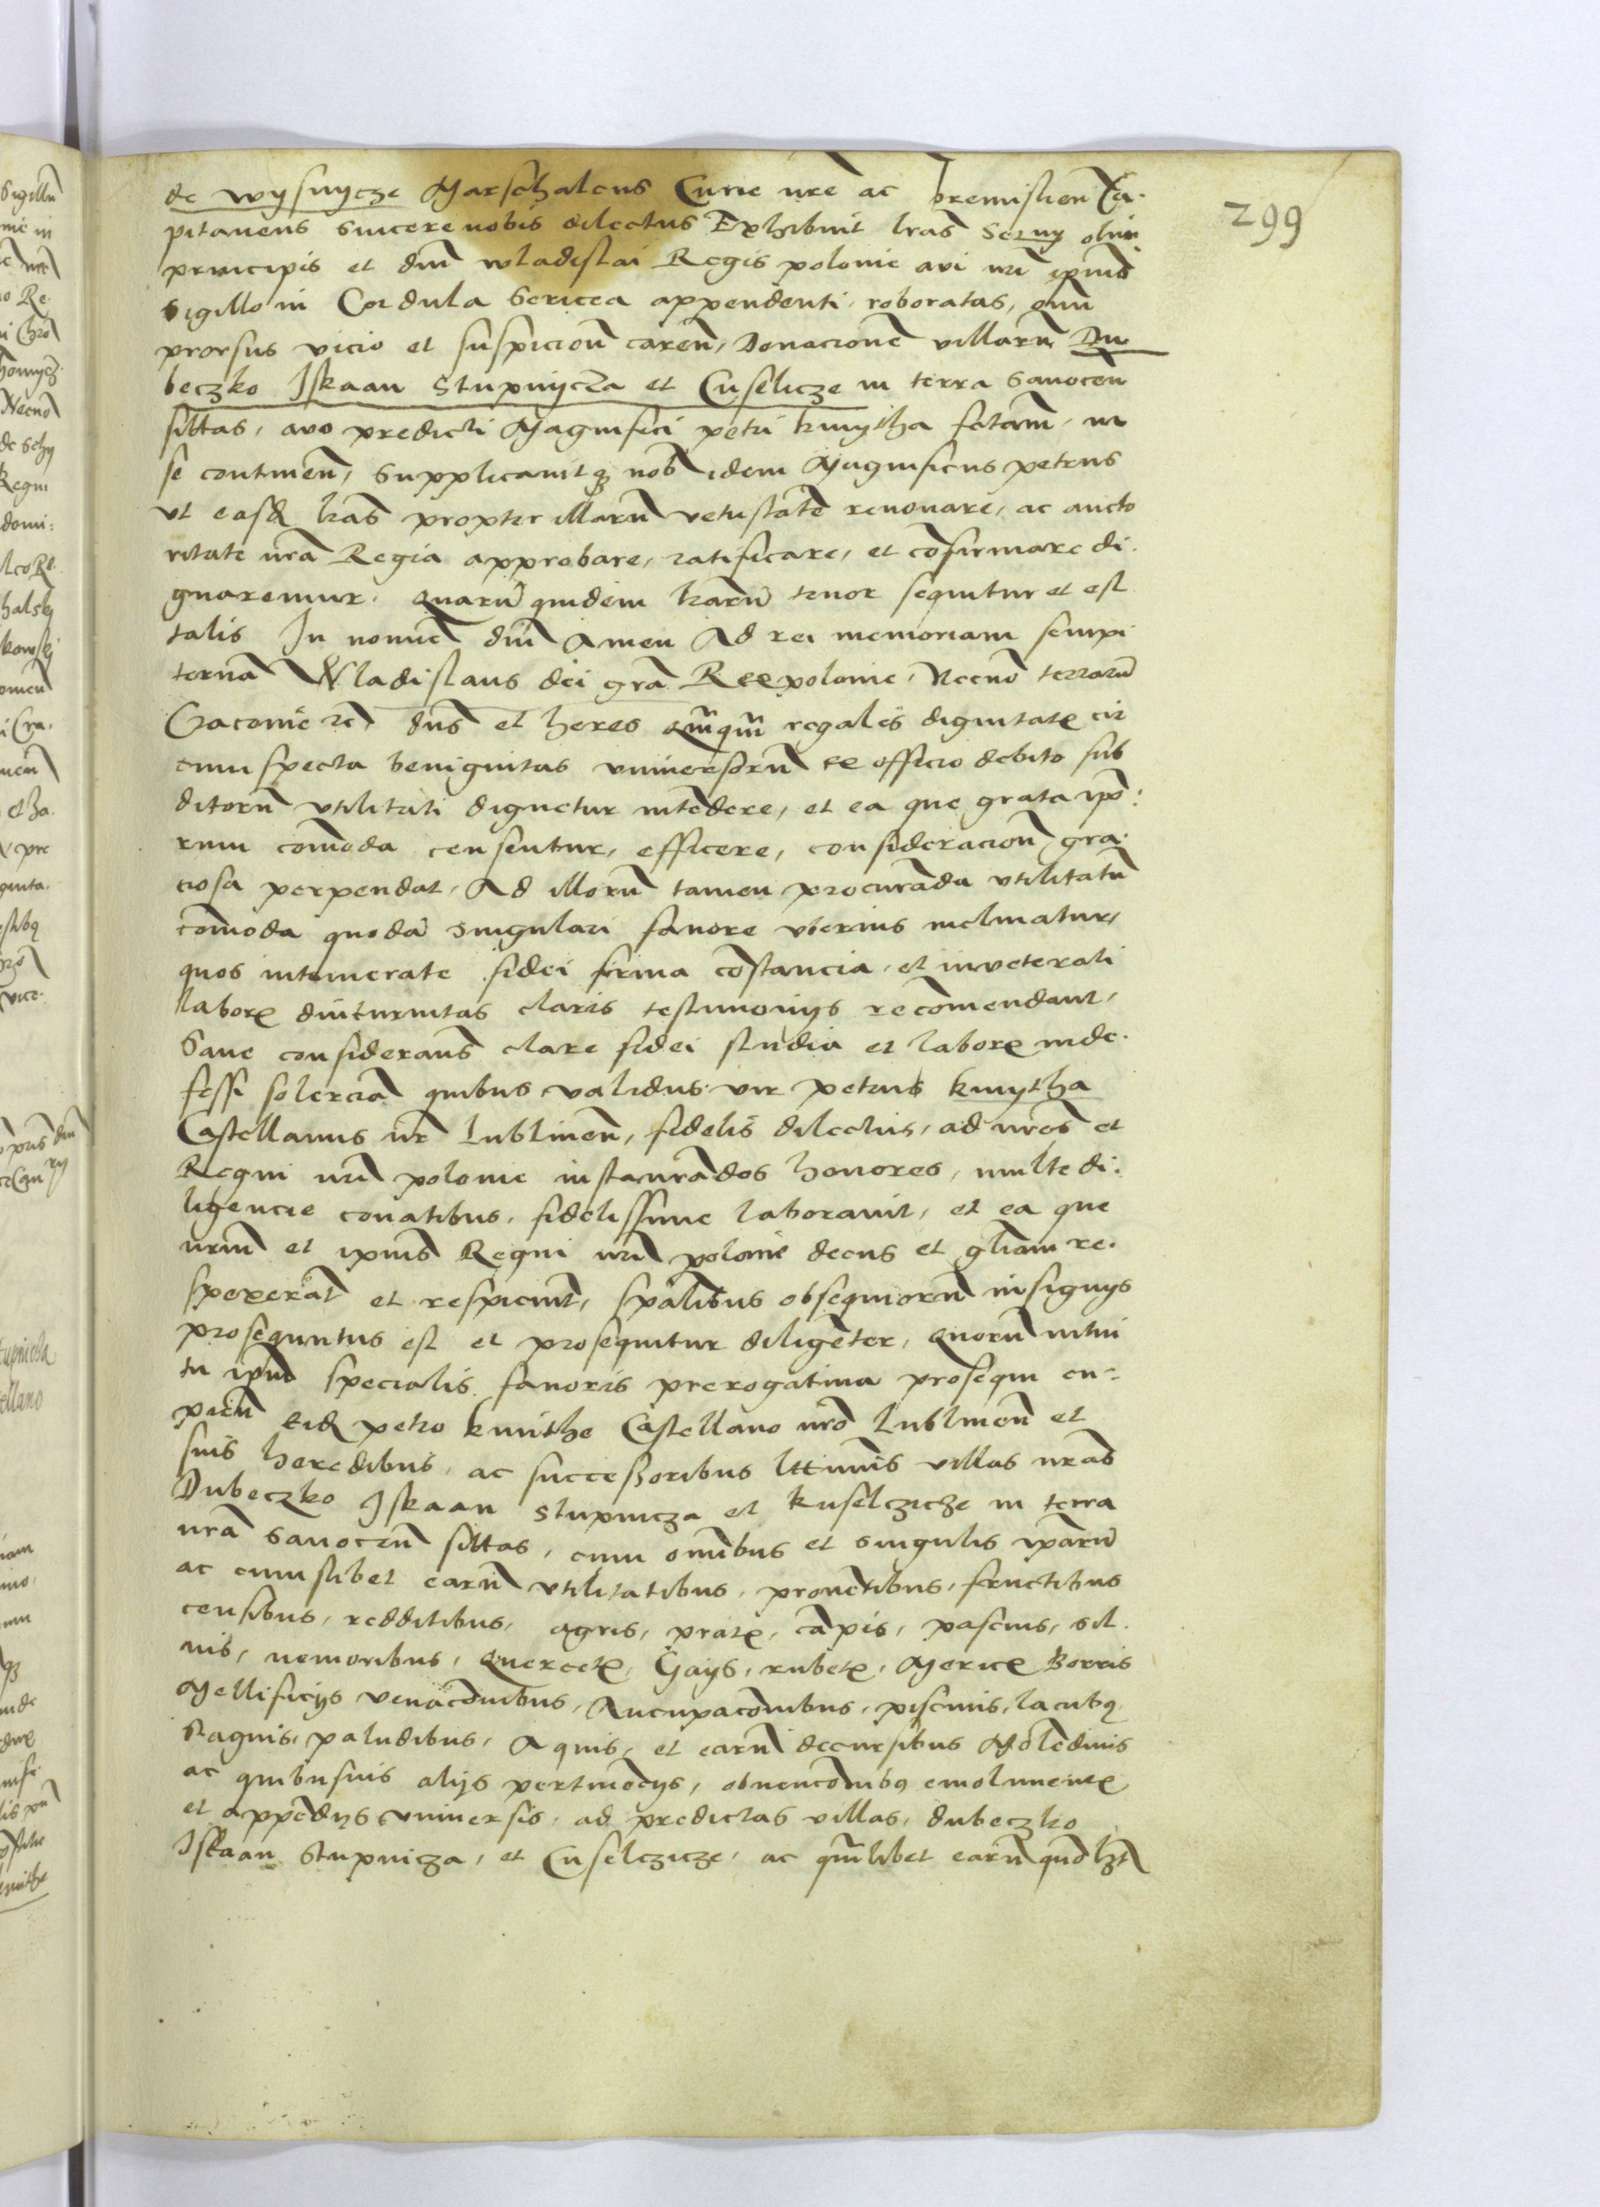 299
de wysnycze Marschalcus Curie nre ac premislien Ca-
pitaneus sincere nobis dilectus Exhibuit lras Sermi olim
principis et dni wladislai Regis polonie avi nri ipius
sigillo in Cordula sericea appendenti roboratas, omi
prorsus vicio et suspicion caren, Donacione villaru Du
beczko Iskaan Stupnycza et Cuselicze in terra Sanocen
sittas, avo predicti Magnifici petri kmytha fctam, in
se continen, Supplicavitq nob idem Magnificus petrus
ut easd lras propter illaru vetustate renovare, ac aucto
ritate nra Regia approbare, ratificare, et cofirmare di-
gnaremur. Quaru quidem lraru tenor sequitur et est
talis In nomie dni Amen Ad rei memoriam sempi
terna Wladislaus dei gra Rex polonie, Necno terraru
Cracovie rc dns et heres Qmqm regalis dignitatis cir
cumspecta benignitas universoru ex officio debito sub
ditoru utilitati dignetur intedere, et ea que grata ipo:
rum comoda censentur, efficere, consideracion gra-
ciosa perpendat, Ad illoru tamen procurada utilitatu
comoda quoda singulari favore uberius inclinatur,
quos intemerate fidei firma costancia, et inveterati
laboris diuturnitas claris testimonijs recomendant,
Sane considerans clare fidei studia et laboris inde-
fessi solercia quibus validus vir petrus kmytha
Castellanus nr Lublinen, fidelis dilectus, ad nros et
Regni nri polonie instaurados honores, multe di-
ligencie conatibus, fidelissime laboravit, et ea que
nrm et ipius Regni nri polonie decus et gliam re-
spexerat et respiciut, spalibus obsequioru insignijs
prosequutus est et prosequitur diligeter, Quoru intui
tu ipm specialis favoris prerogativa prosequi cu-
pien Eid petro kmithe Castellano nro Lublinen et
suis heredibus, ac successoribus lttimis villas nras
Dubeczko Iskaan Stupnicza et Kuselczicze in terra
nra Sanocen sittas, cum omibus et singulis iparu
ac cuiuslibet earu utilitatibus, provetibus, fructibus
censibus, redditibus, agris, pratis, capis, pascuis, sil-
vis, nemoribus, Quercetis, Gays, rubetis, Mericis Borris
Mellificijs venacoibus, Aucupacoibus, piscinis, lacubq
stagnis, paludibus, Aquis, et earu decursibus Moledinis
ac quibusvis alijs pertinecijs, obvencoibq emolumentis
et appedijs universis, ad predictas villas, dubeczko
Iskaan Stupnicza, et Cuselczicze, ac qmlibet earu quolzt